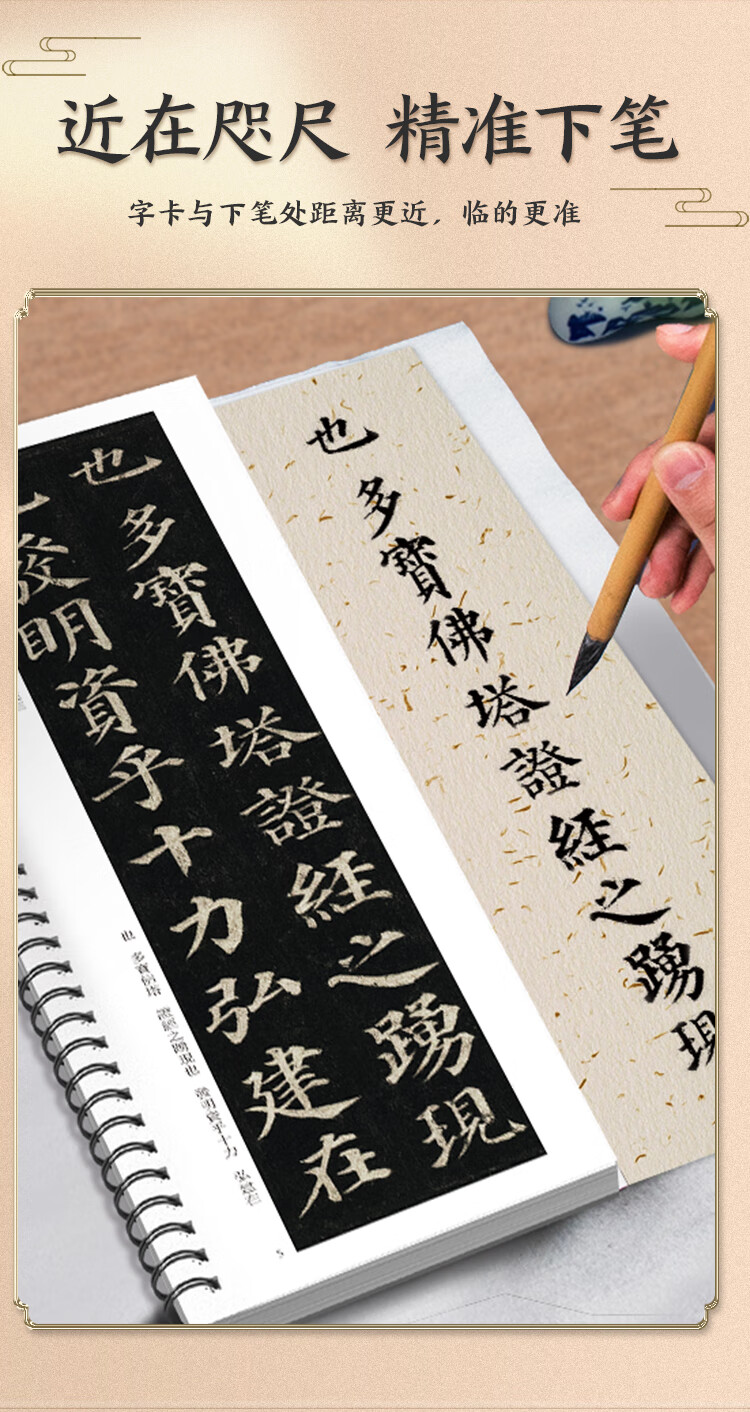 近在咫尺 精准下笔
字卡与下笔处距离更近，临的更准
也多寶佛塔證經之踴現
也多寶佛塔證經之踴現
發明資乎十力弘建在
也 多寶佛塔 證經之踴現也 發明資乎十力 弘建在
5